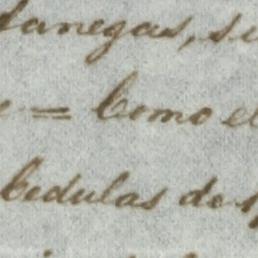 fanegas, su
e = Como el
Cedulas de